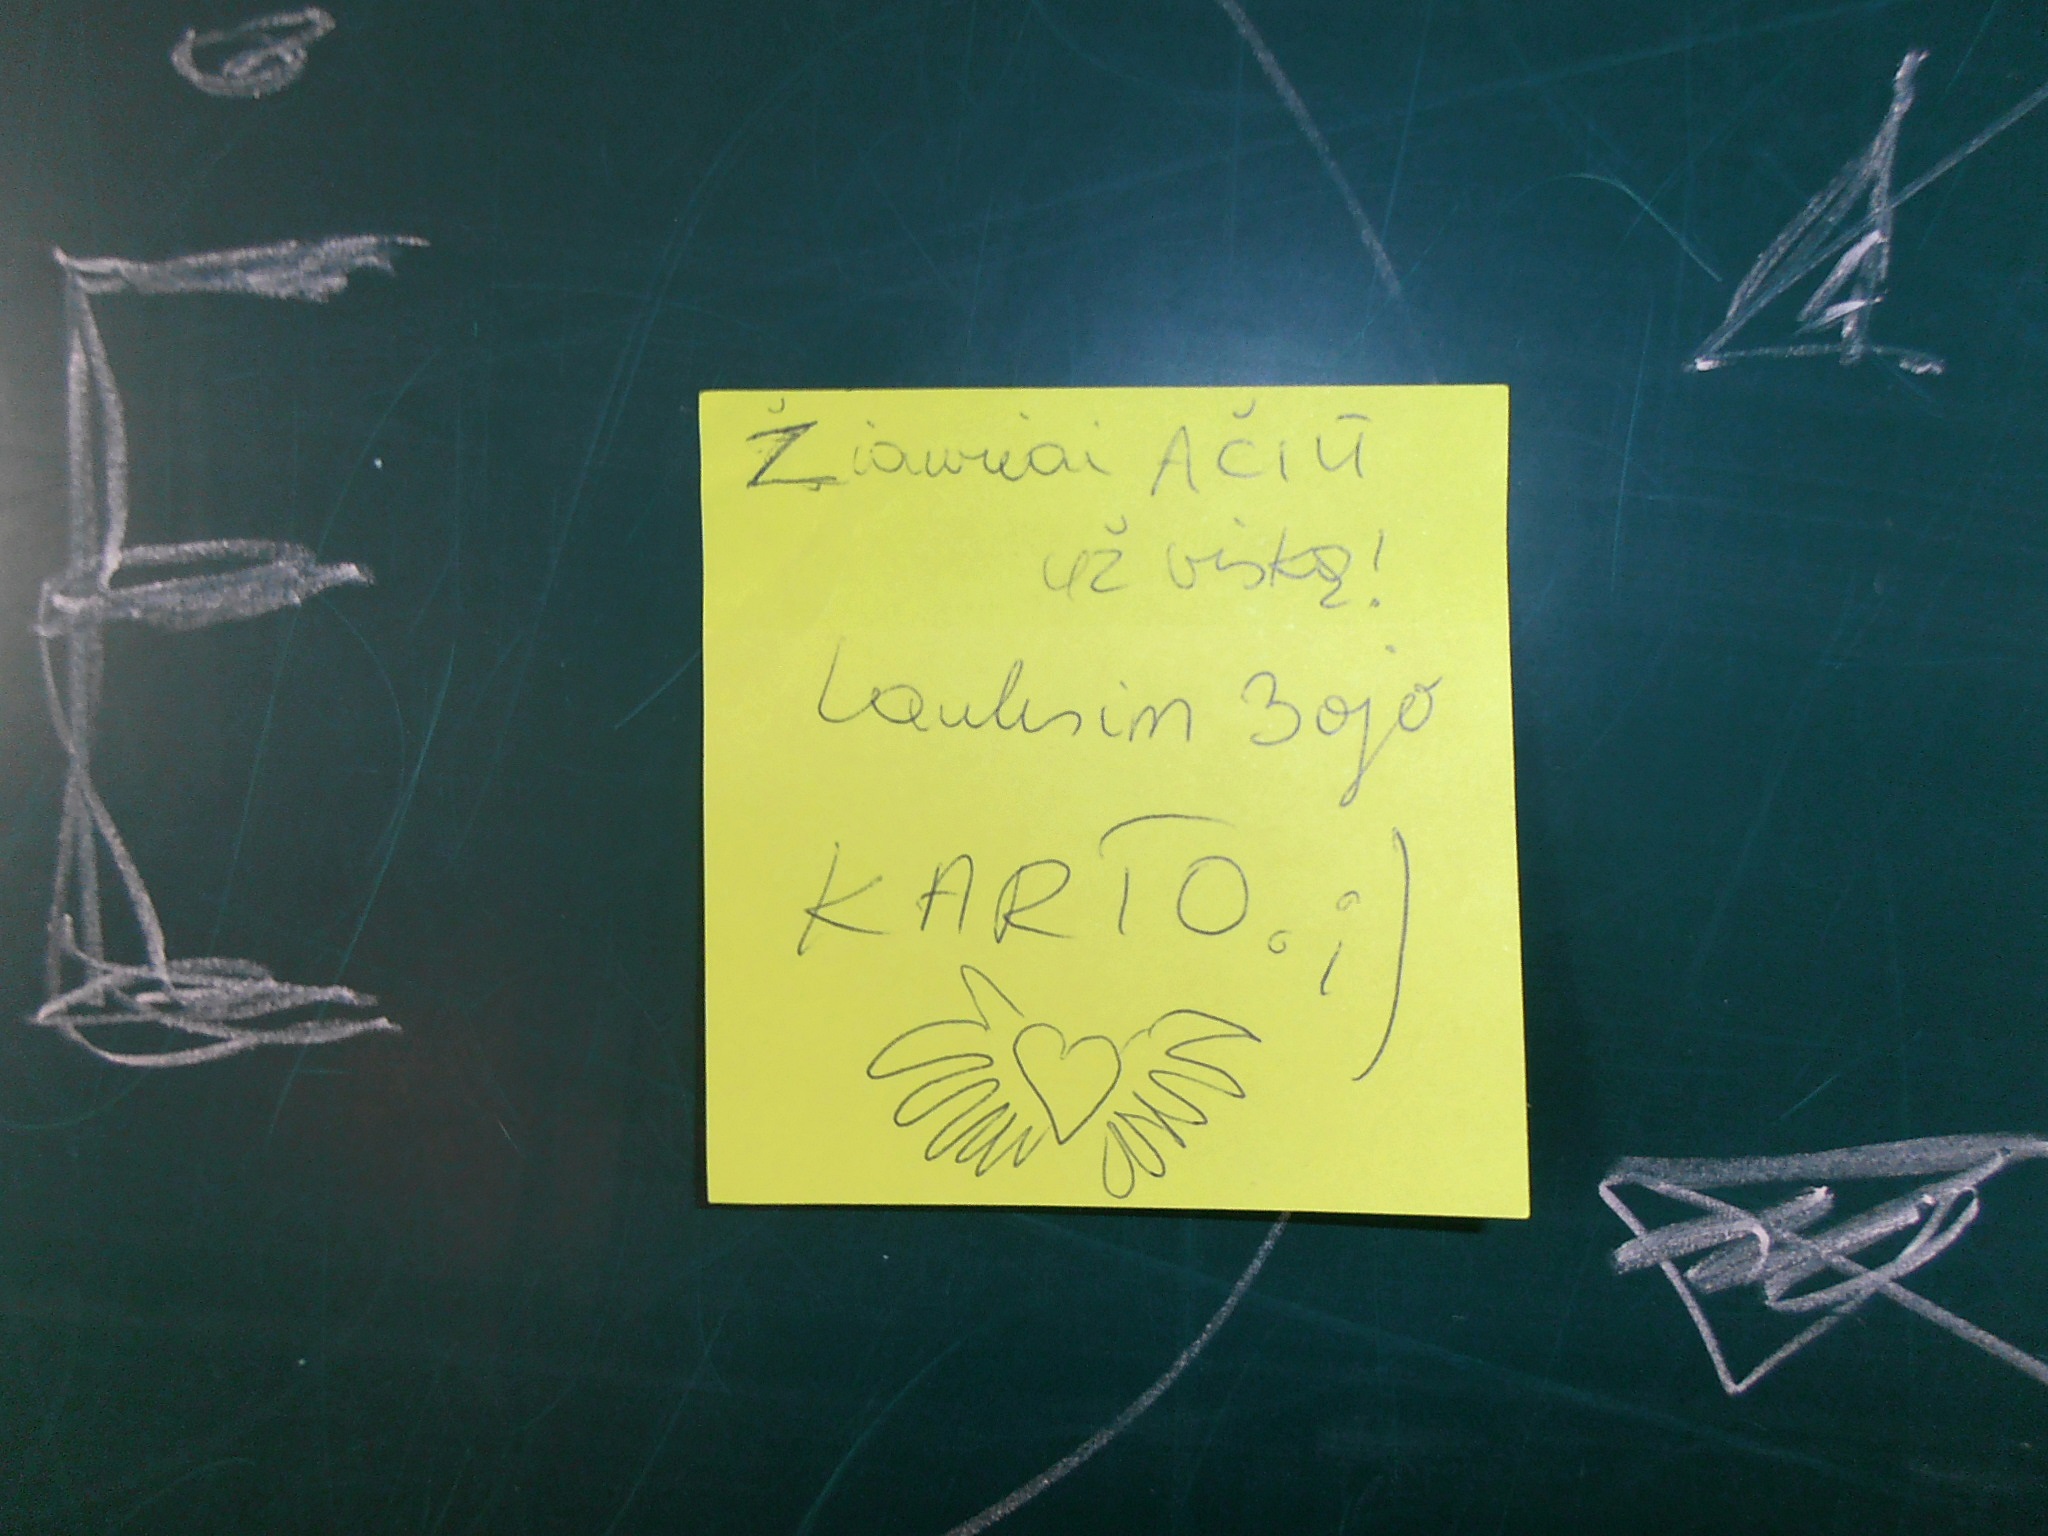 Žiauriai AČIŪ
už viską!
Lauksim 3ojo
KARTO. ;)